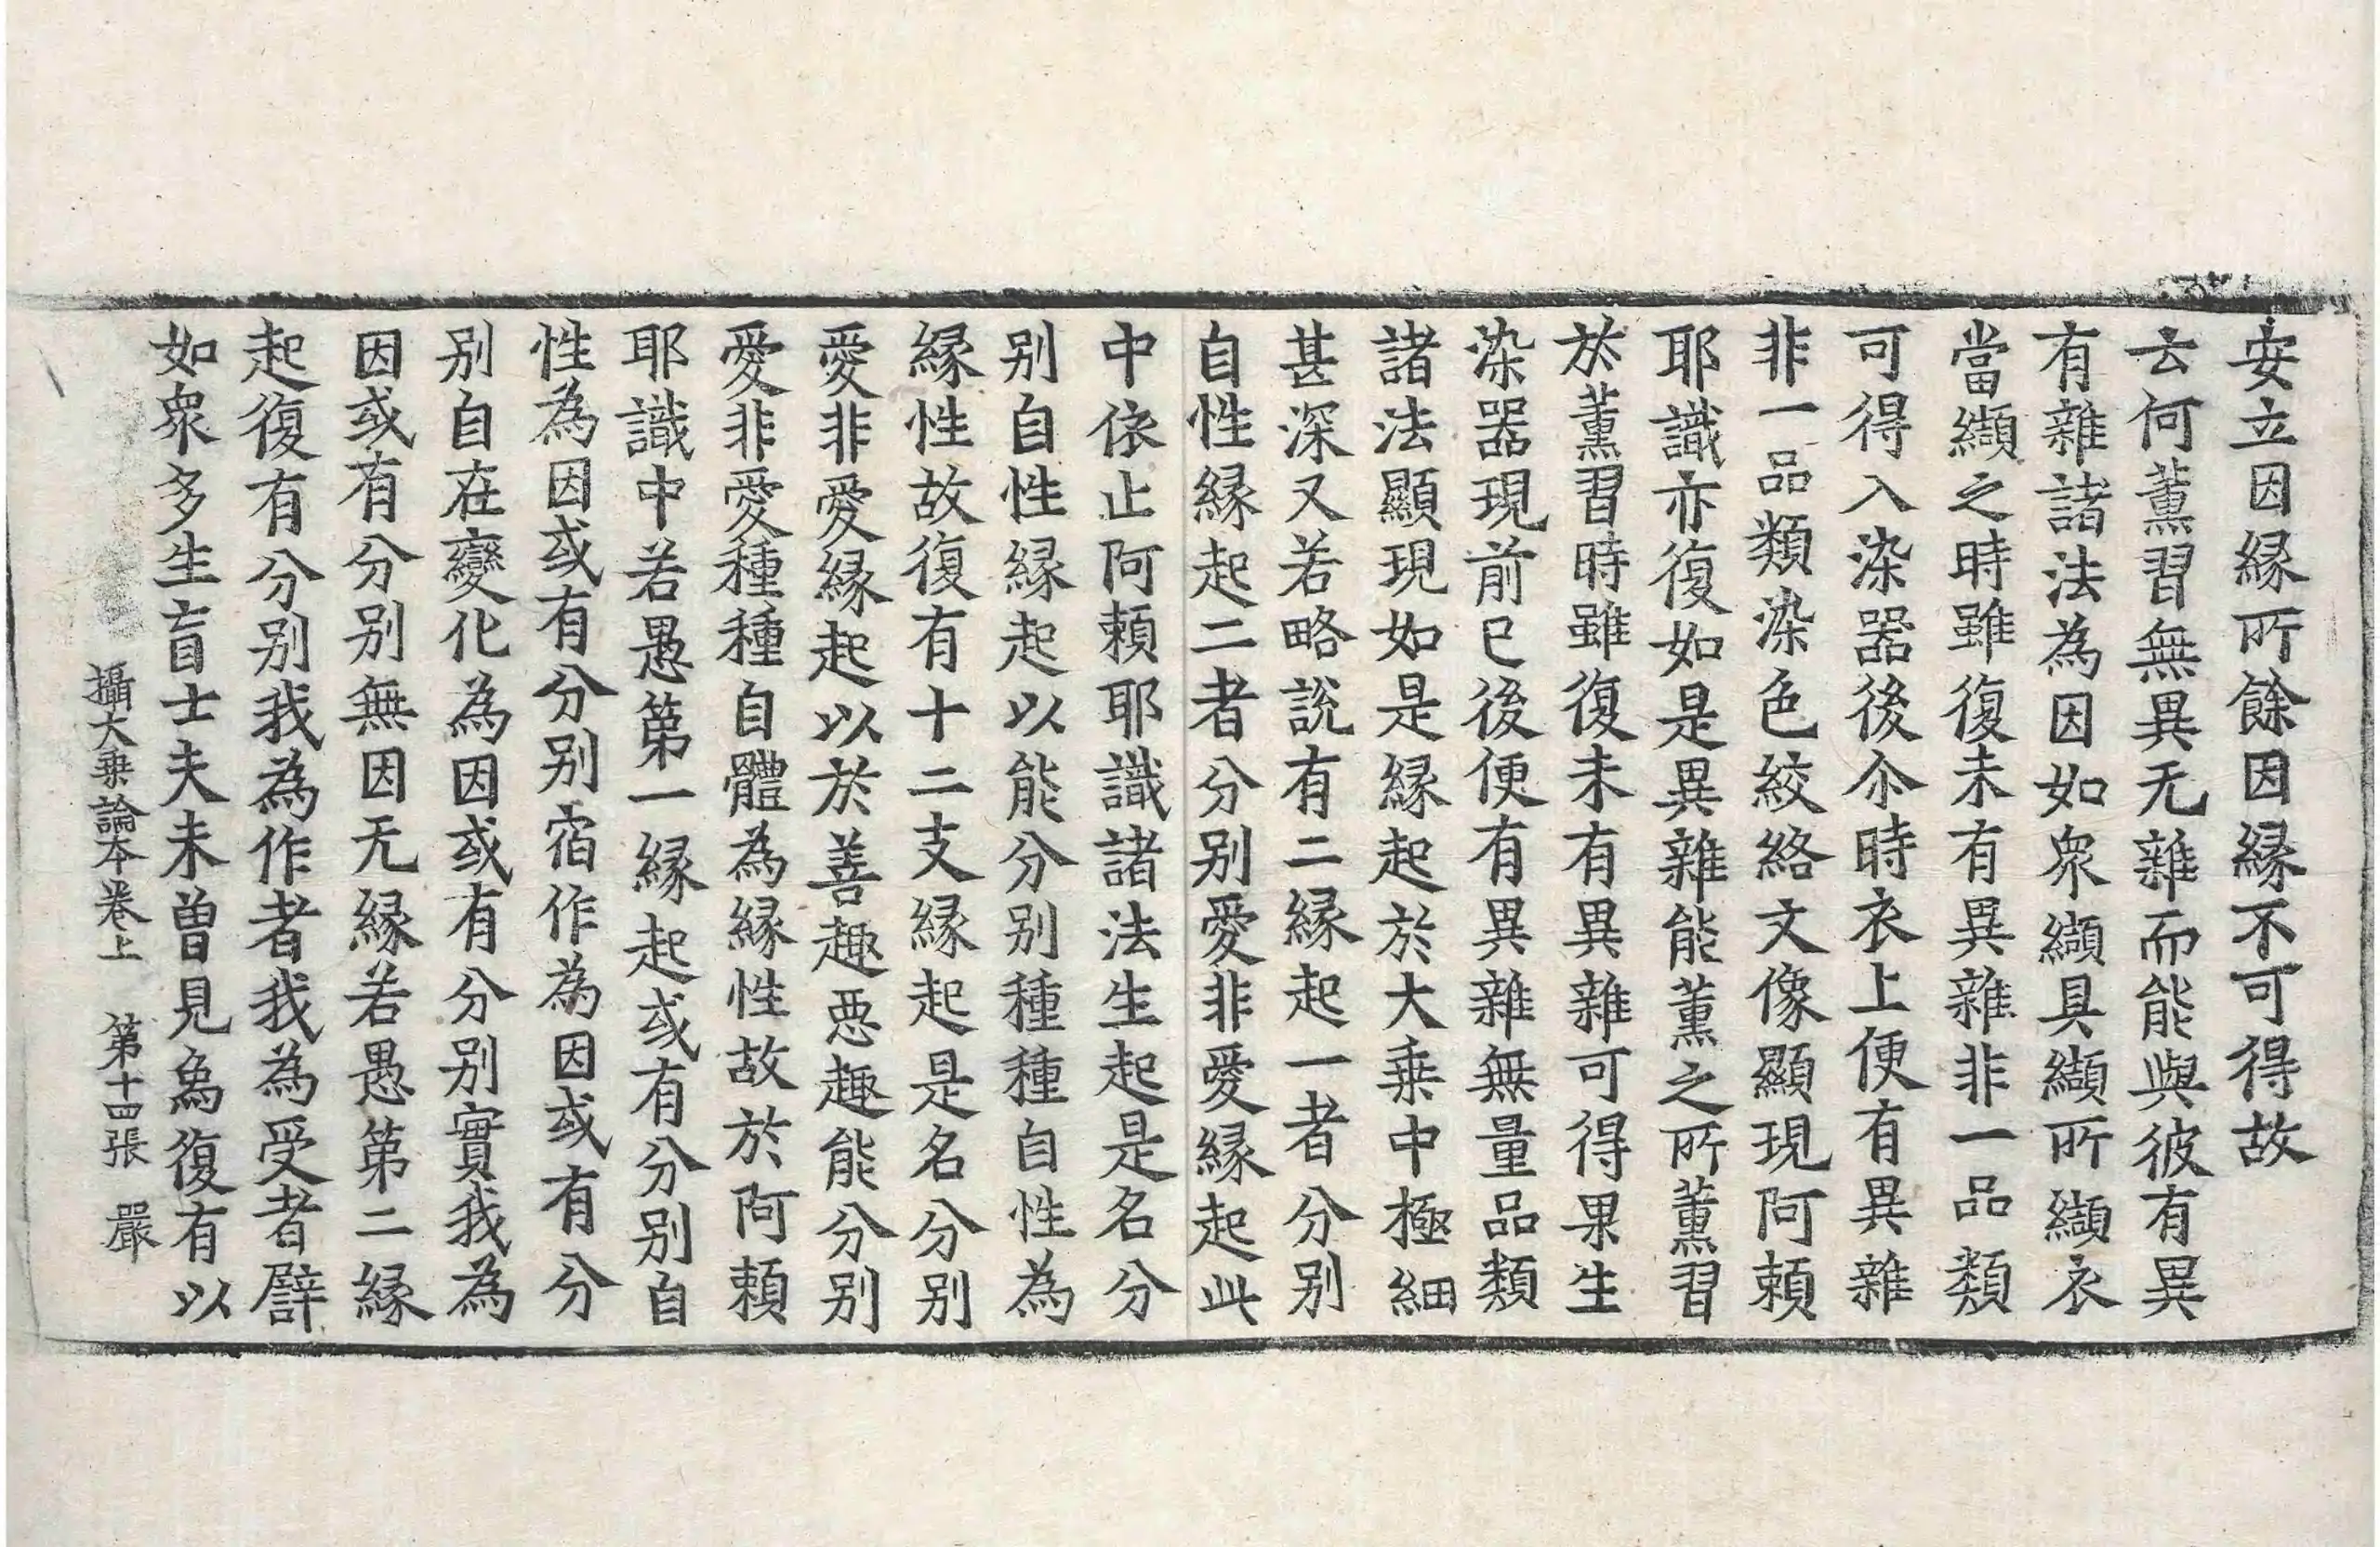 安立因縁所餘因縁不可得故
云何薰習無異无雜而能與彼有異
有雜諸法為因如衆纈具纈所纈衣
當纈之時雖復未有異雜非一品類
可得入染器後尒時衣上便有異雜
非一品類染色絞絡文像顯現阿賴
耶識亦復如是異雜能薰之所薰習
於薰習時雖復未有異雜可得果生
染器現前已後便有異雜無量品類
諸法顯現如是縁起於大乗中極細
甚深又若略說有二縁起一者分别
自性縁起二者分别愛非愛縁起此
中依止阿賴耶識諸法生起是名分
别自性縁起以能分别種種自性為
縁性故復有十二支縁起是名分别
愛非愛縁起以於善趣惡趣能分别
愛非愛種種自體為縁性故於阿賴
耶識中若愚第一縁起或有分别自
性為因或有分别宿作為因或有分
别自在變化為因或有分别實我為
因或有分别無因无縁若愚第二縁
起復有分别我為作者我為受者譬
如衆多生盲士夫未曽見象復有以
攝大乗論本卷上　第十四張　嚴